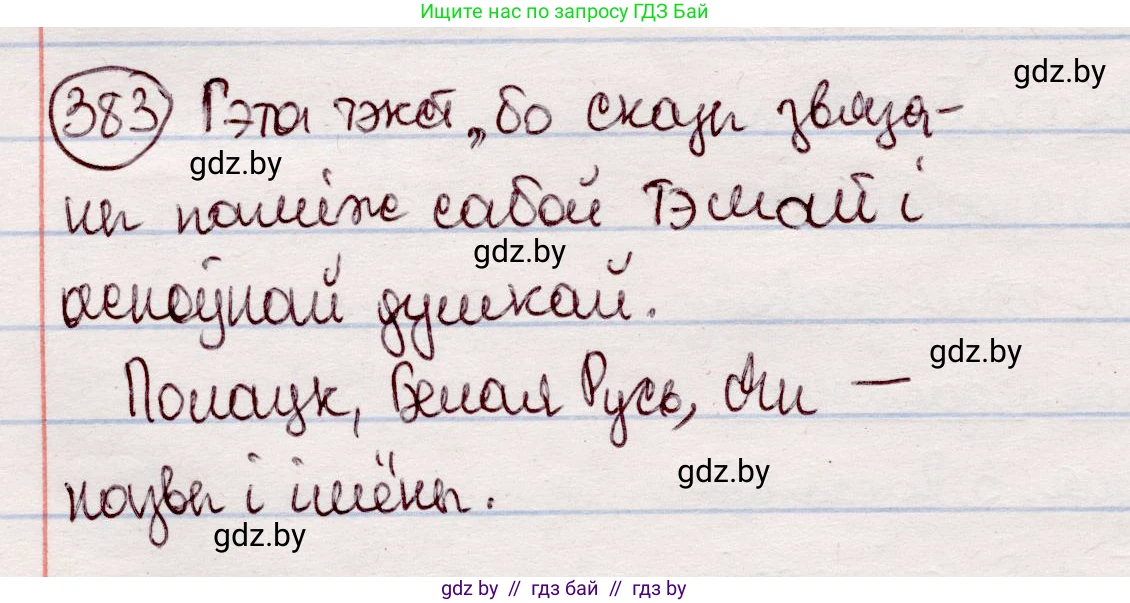 Ищите нас по запросу ГДЗ Бай
gdz.by
383 Гэта тэкст, бо сказы звяза-
gdz.by
ны паміж сабой тэмай і
gdz.by
асноўнай думкай.
gdz.by
Полацк, Белая Русь,
назвы і імёны.
gdz.by
gdz.by
gdz by // гдз бай // гдз by